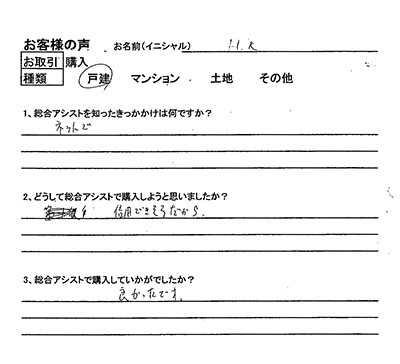 お客様の声 お名前(イニシャル) H.K
お取引 購入
種類 戸建 マンション 土地 その他
1、総合アシストを知ったきっかけは何ですか?
ネットで
2、どうして総合アシストで購入しようと思いましたか?
信用できそうだから。
3、総合アシストで購入していかがでしたか?
良かったです。